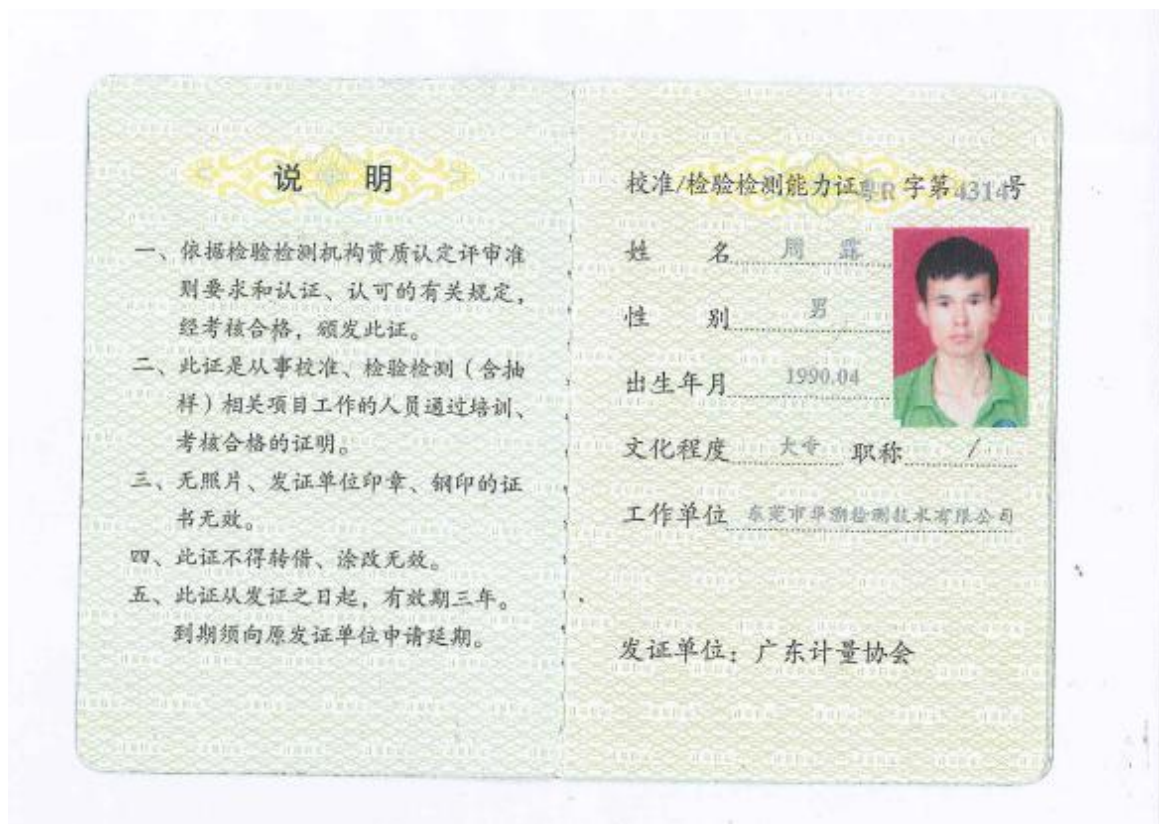 说 明
一、依据检验检测机构资质认定评审准
则要求和认证、认可的有关规定，
经考核合格，颁发此证。
二、此证是从事校准、检验检测（含抽
样）相关项目工作的人员通过培训、
考核合格的证明。
三、无照片、发证单位印章、钢印的证
书无效。
四、此证不得转借、涂改无效。
五、此证从发证之日起，有效期三年。
到期须向原发证单位申请延期。
校准/检验检测能力证粤R 字第4314号
姓 名 周 露
性 别 男
出生年月 1990.04
文化程度 大专 职称 /
工作单位 东莞市华测检测技术有限公司
发证单位：广东计量协会